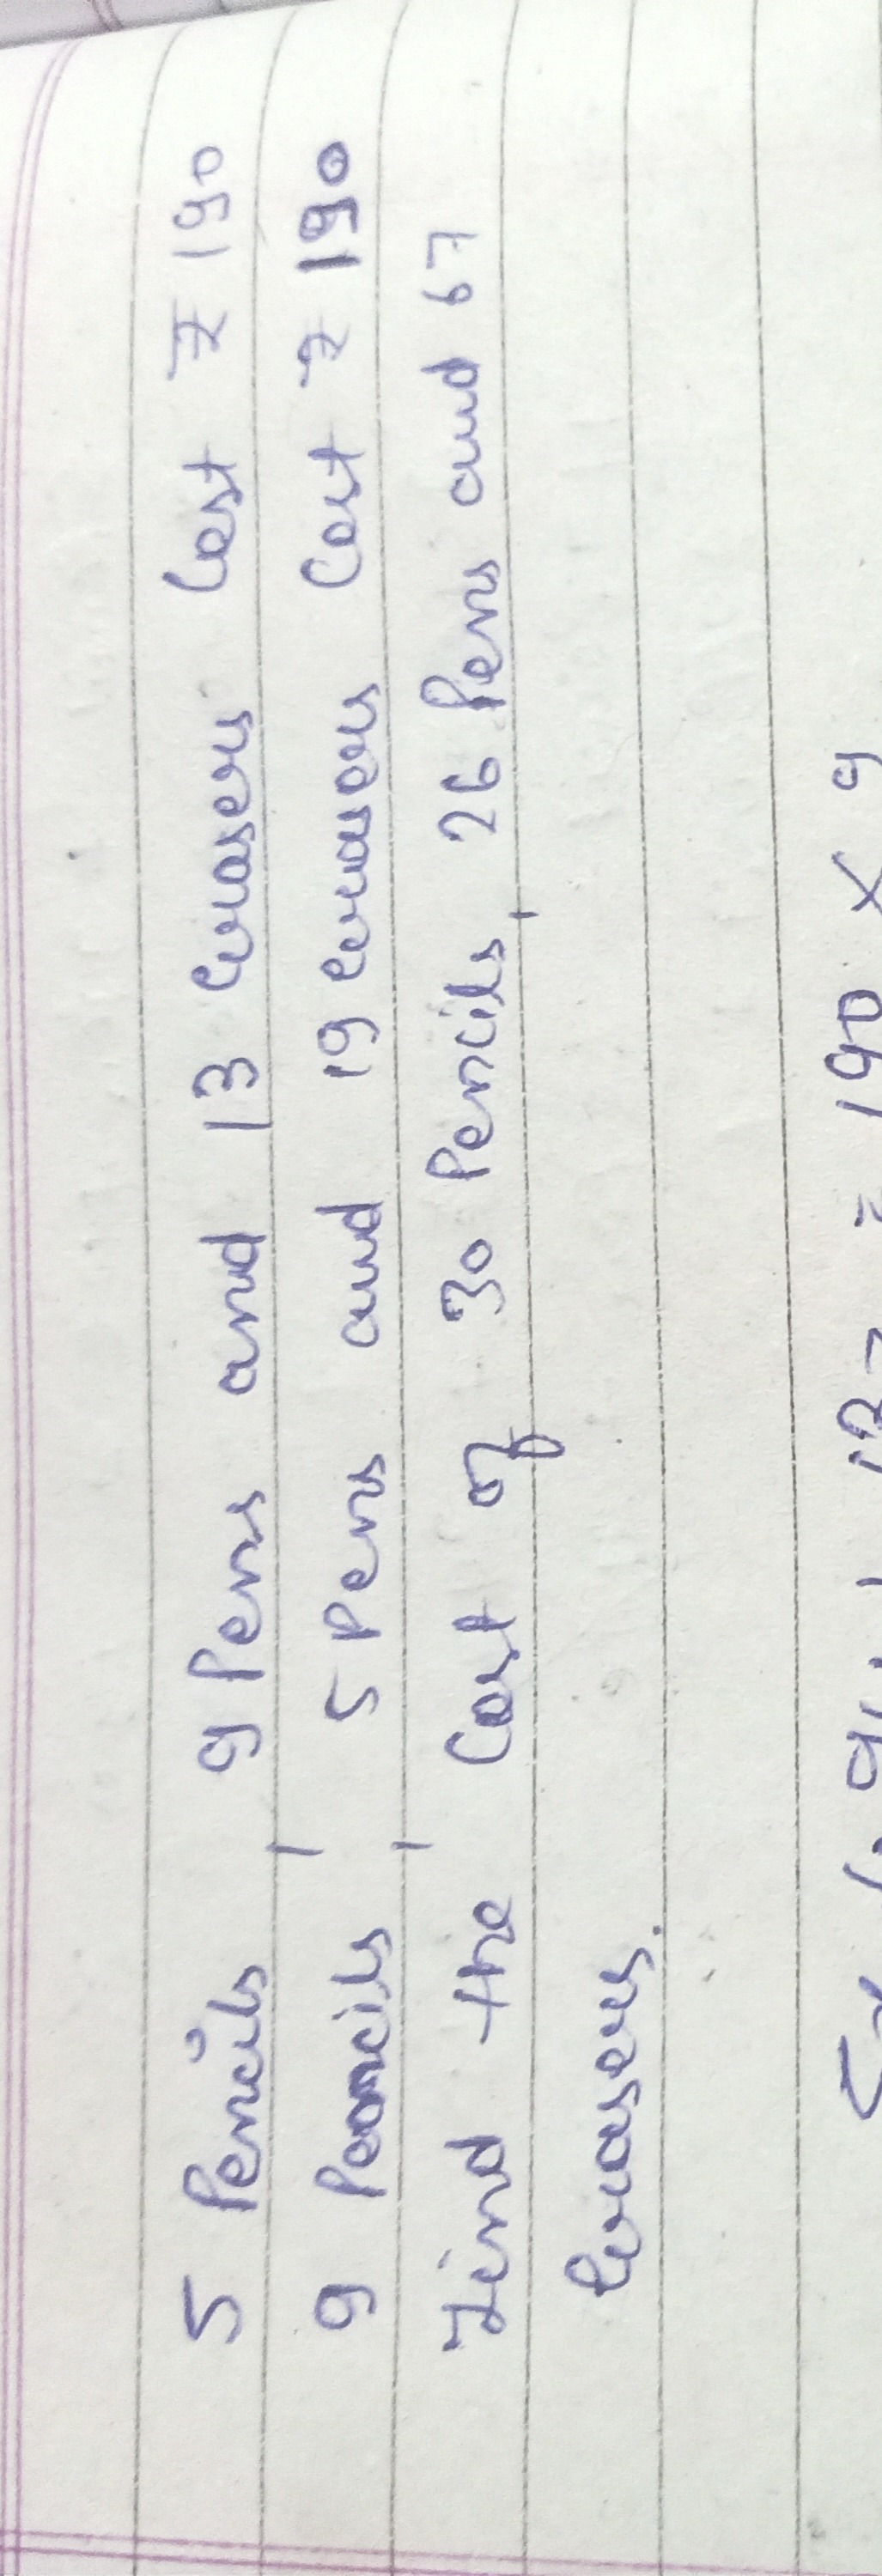 5 Pencils, 9 Pens and 13 Erasers Cost ₹ 190
9 Pencils, 5 Pens and 19 erasers Cost ₹ 190
Find the Cost of 30 Pencils, 26 Pens and 67
Erasers.
= 190 × 9